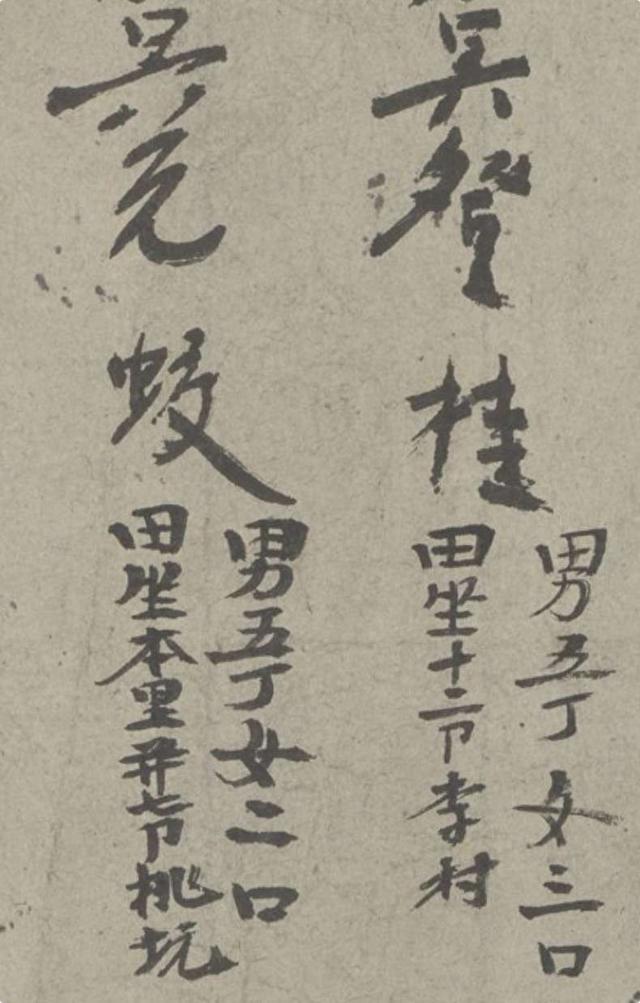 吴登桂
男五丁女三口
田坐十二卩李村
吴元蛟
男五丁女二口
田坐本里并七卩桃坑